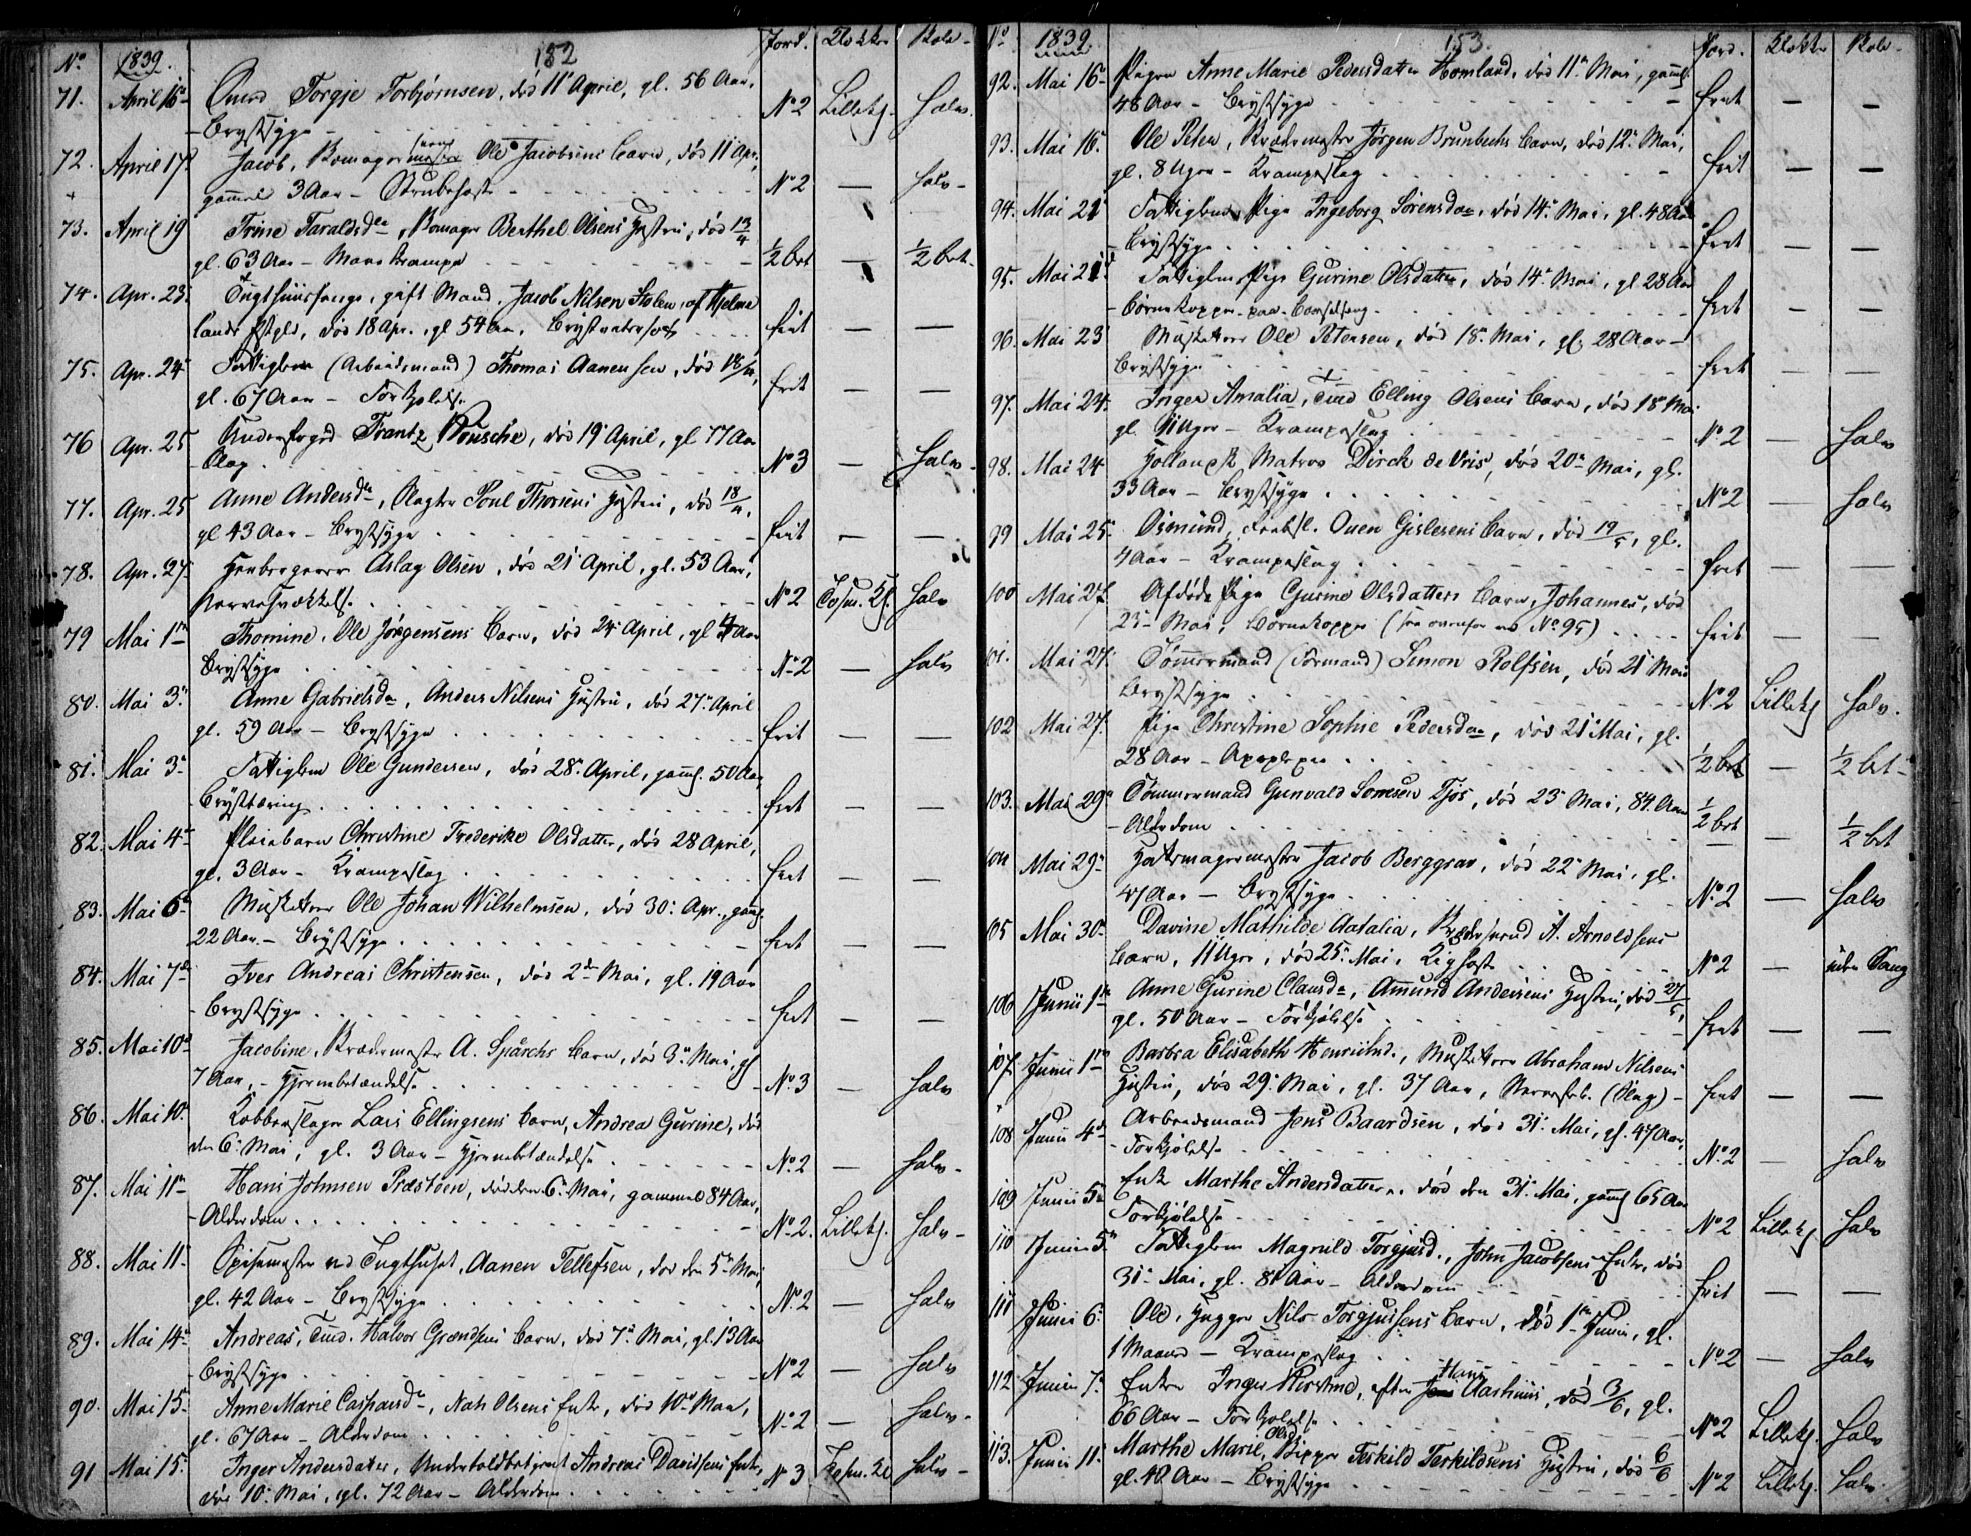 No 1839. 152 Jord. Klokke Kule
71. April 16 Torgje Torbjørnsen, død 11 April, gl. 56 Aar,
Brystsyge No 2 Lillekl. halv
72. April 17 Jacob, Ole Jacobsens Barn, død 11 Apr.,
gammel 3 Aar – Strubehoste No 2 — halv
73. April 19 Trine Taraldsd., Berthel Olsens Hustru, død 13/4
gl. 63 Aar – 1/2 bet — 1/2 bet
74. Apr. 23 Tugthuusfange, gift Mand, Jacob Nilsen Stolen, af Hjelme
lands Pgld, død 18 Apr., gl 54 Aar, frit — —
75. Apr. 24 Fattiglem (Arbeidsmand) Thomas Aanensen, død 18/4,
gl. 67 Aar – Forkjølelse frit — —
76 Apr. 25 Underfoged Frantz, død 19 April, gl 77 Aar
Slag No 3 — halv
77. Apr. 25 Anne Andersd., Slagter Poul Thorsens Hustru, død 18/4,
gl 43 Aar – Brystsyge frit — —
78. Apr. 27 Aslag Olsen, død 21 April, gl. 53 Aar,
Nervesvækkelse No 2 halv
79 Mai 1 Thomine, Ole Jørgensens Barn, død 24 April, gl 4 Aar
Brystsyge No 2 — halv
80. Mai 3. Anne Gabrielsd., Anders Nilsens Hustru, død 27. April
gl. 59 Aar – Brystsyge frit — —
81. Mai 3 Fattiglem Ole Gundersen, død 28 April, gaml. 50 Aar,
Brysttæring frit — —
82. Mai 4 Pleiebarn Christine Frederike Olsdatter, død 28 April,
gl. 3 Aar – Krampeslag frit — —
83. Mai 6 Musketeer Ole Johan Wilhelmsen, død 30. Apr., gaml.
22 Aar – Brystsyge frit — —
84. Mai 7 Ives Andreas Christensen, død 2 Mai, gl. 19 Aar
Brystsyge frit — —
85. Mai 10 Jacobine, Skrædermester A. Spärchs Barn, død 3 Mai, gl
7 Aar, – Hjernebetændelse No 3 — halv
86. Mai 10. Kobberslager Lars Ellingsens Barn, Andrea Gurine, død
den 6 Mai, gl. 3 Aar – Hjernebetændelse No 2 — halv
87. Mai 11 Hans Johnsen Præstøen, død den 6 Mai, gammel 84 Aar,
Alderdom No 2. Lillekl. halv
88. Mai 11 Spisemester ved Tugthuset, Aanen Tellefsen, død den 5 Mai,
gl. 42 Aar – Brystsyge No 2 — halv
89. Mai 14 Andreas, Halvor Grændsens Barn, død 7 Mai, gl. 13 Aar
Brystsyge No 2 — halv
90. Mai 15 Anne Marie Caspersd., Olsens Enke, død 10 Mai,
gl. 67 Aar – Alderdom No 2 — halv
91 Mai 15. Inger Andersdatter, Andreas Davidsens Enke,
død 10 Mai, gl. 72 Aar – Alderdom No 3 halv
No 1839 153. Jord. Klokke Kule
92. Mai 16 Pigen Anne Marie Pedersdatter Homland, død 11 Mai, gaml.
48 Aar – Brystsyge frit — —
93. Mai 16. Ole Peter, Skrædermester Jørgen Brunbechs Barn, død 12 Mai,
gl. 8 Uger – Krampeslag frit — —
94. Mai 21 Fattiglem, Pige Ingeborg Sørensd., død 14 Mai, gl. 48 Aar
Brystsyge frit — —
95. Mai 21 Fattiglem, Pige Gurine Olsdatter, død 14 Mai, gl 28 Aar
Børnekopper paa Barselseng frit — —
96. Mai 23 Musketeer Ole Petersen, død 18 Mai, gl. 28 Aar –
Brystsyge frit — —
97. Mai 24. Inger Amalia, Elling Olsens Barn, død 18 Mai
gl. Uger – Krampeslag No 2 — halv
98. Mai 24 Hollandsk Matros Dirck de Vris, død 20 Mai, gl.
33 Aar – Brystsyge No 2 — halv
99 Mai 25 Osmund, Ouen Gislesens Barn, død 19/5, gl.
4 Aar – Krampeslag frit — —
100 Mai 27. Afdøde Pige Gurine Olsdatters Barn, Johannes, død
Mai, Børnekopper (see ovenfor ved No 95) frit — —
101. Mai 27. Tømmermand (Formand) Simon Rolfsen, død 21 Mai
Brystsyge No 2 Lillekl halv.
102 Mai 27. Pige Christine Sophie Pedersd., død 21 Mai, gl.
28 Aar – 1/2 bet — 1/2 bet
103. Mai 29 Tømmermand Gunvald Tjos, død 23 Mai, 84 Aar
Alderdom 1/2 bet — 1/2 bet
104 Mai 29 Hattemagermester Jacob Berggrav, død 22 Mai, gl.
47 Aar – Brystsyge No 2 — halv
105 Mai 30 Davine Mathilde Aatalia, A. Arnoldsens
Barn, 11 Uger, død 25 Mai, Kighoste No 2 — uden Sang
106 Junii 1 Anne Gurine Clausd., Amund Andersens Hustru, død 27/5,
gl. 50 Aar – Forkjølelse frit — —
107 Junii 1 Barbra Elisabeth Henriksd., Musketeer Abraham Nilsens
Hustru, død 29 Mai, gl. 37 Aar, (Slag) – frit — —
108 Junii 4 Arbeidsmand Jens Baardsen, død 31. Mai, gl. 47 Aar,
Forkjølelse No 2 — halv
109 Junii 5 Enke Marthe Andersdatter, død den 31 Mai, gaml 65 Aar
Forkjølelse No 2 Lillekl halv
110 Junii 5 Fattiglem Magnild Torgjusd., John Jacobsens Enke, død
31 Mai, gl. 81 Aar – Alderdom frit — —
111 Junii 6. Ole, Nils Torgjussens Barn, død 1 Junii, gl.
1 Maaned – Krampeslag No 2 — halv
112 Junii 7 Enke Inger Kirstine, efter Hans Aarhuus, død 3/6, gl.
66 Aar – Forkjølelse No 2 Lillekl. halv
113. Junii 11. Marthe Marie Olsd., Terkild Terkildsens Hustru, død 6/6
gl. 48 Aar – Brystsyge No 2 Lillekl. halv